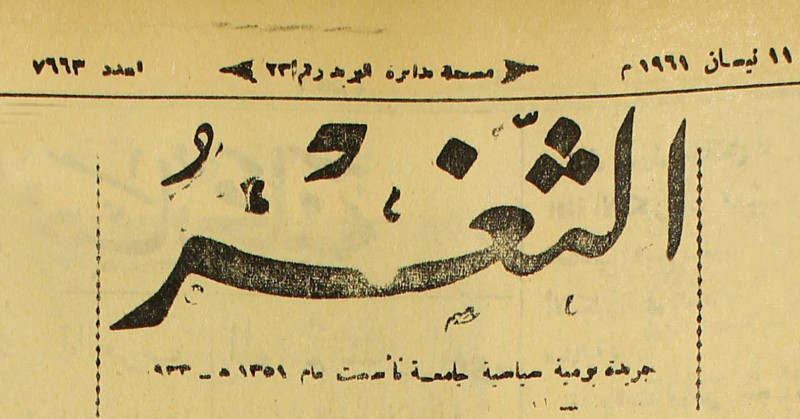 ١١ نيسان ١٩٦١ م مسجلة بدائرة البريد رقم ٢٣ العدد ٧٦٦٣
الثغر
جريدة يومية سياسية جامعة تأسست عام ١٣٥١ هـ - ٩٣٣